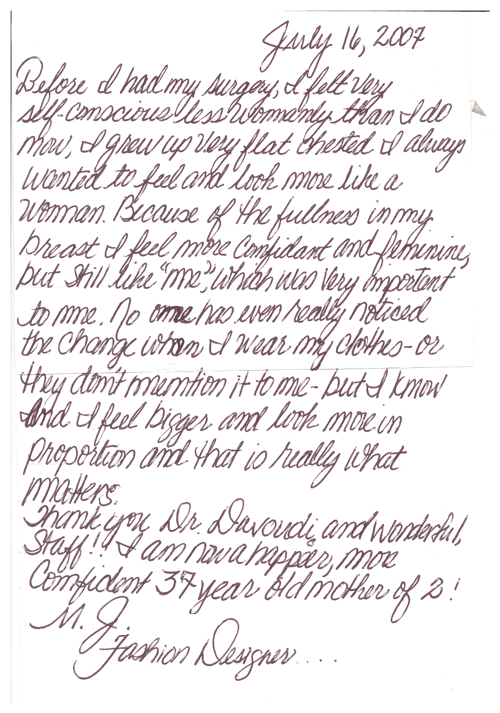 July 16, 2007
Before I had my surgery, I felt very
self-conscious less womanly than I do
now, I grew up very flat chested I always
wanted to feel and look more like a
woman. Because of the fullness in my
breast I feel more confidant and feminine,
but still like "me", which was very importent
to me. No one has even really noticed
the change when I wear my clothes - or
they don't mention it to me - but I know
And I feel bigger and look more in
proportion and that is really what
matters.
Thank you Dr. Davoudi, and wonderful,
Staff!! I am now a happier, more
Confident 37 year old mother of 2!
M. J.
Fashion Designer....